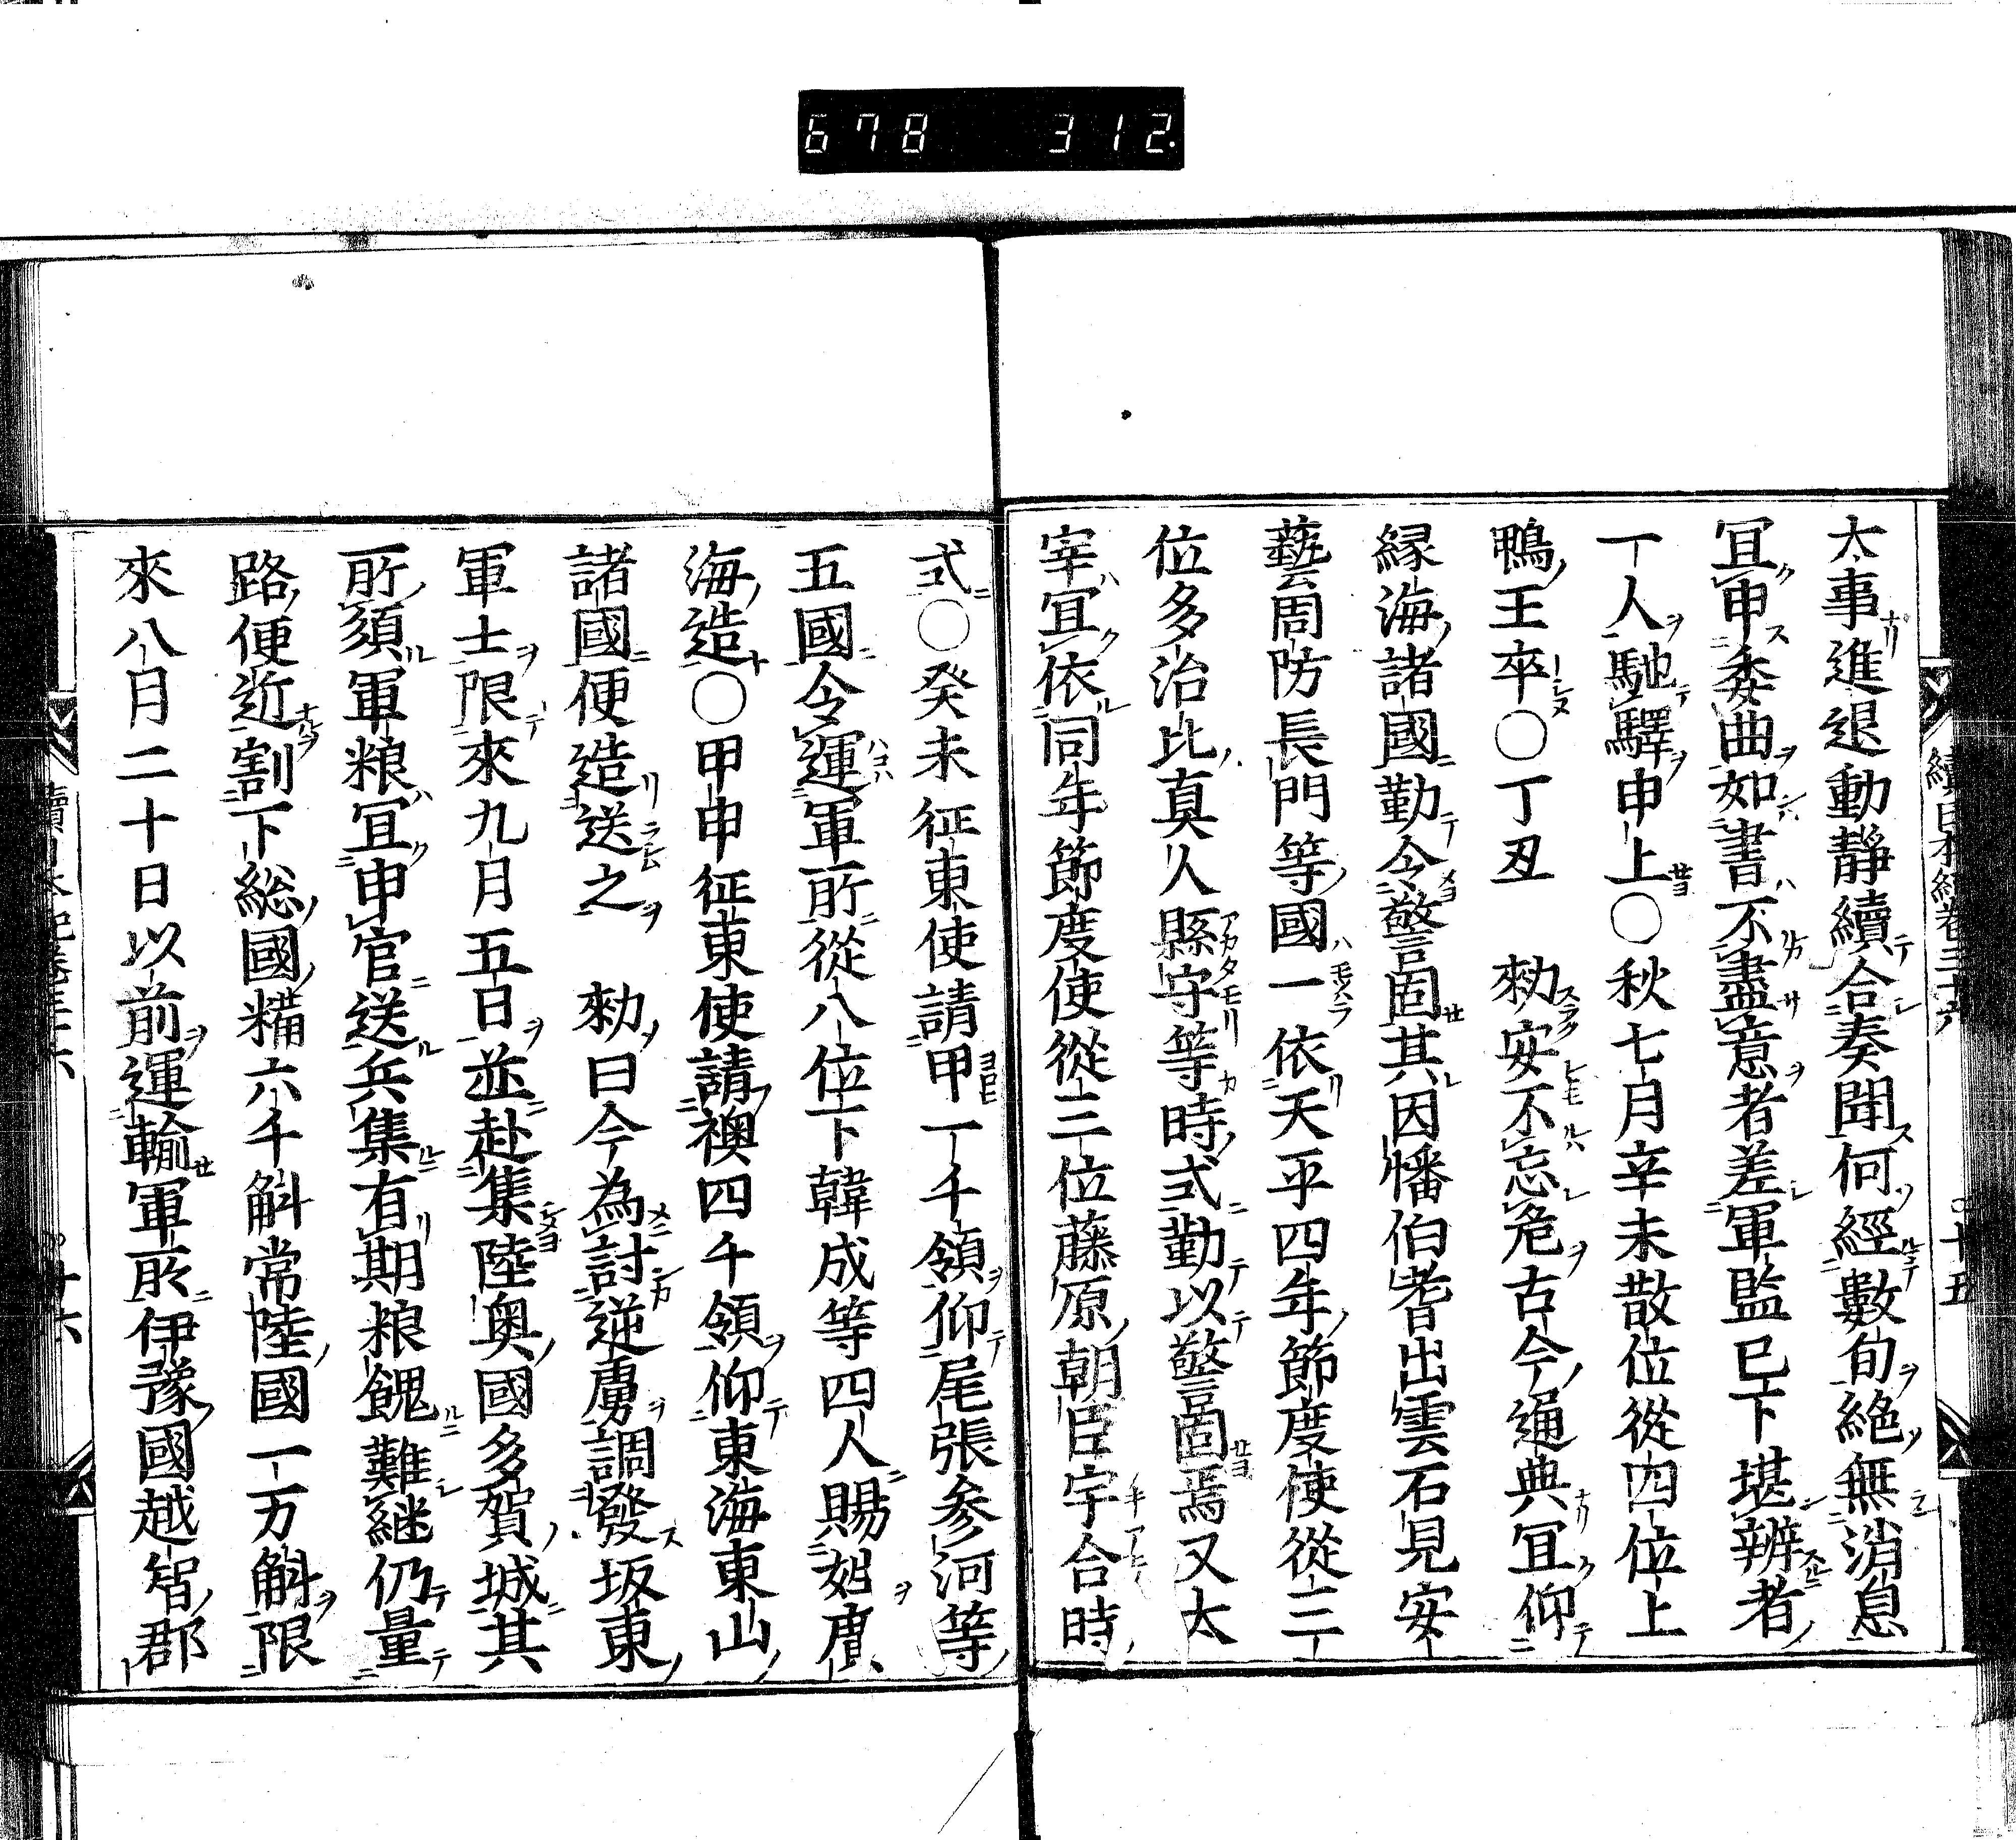 678 312.
太事進退動靜續合奏聞何經數旬絶無消息
冝申委曲如書不盡意者差軍監已下堪辨者
一人馳驛申上〇秋七月辛未散位從四位上
鴨王卒〇丁丑 勅安不忘危古今通典冝仰
縁海諸國勤令警固其因幡伯耆出雲石見安
藝周防長門等國一依天平四年節度使從三
位多治比真人縣守等時式勤以警固焉又太
宰冝依同年節度使從三位藤原朝臣宇合時
式〇癸未征東使請甲一千領仰尾張参河等
五國令運軍所從八位下韓成等四人賜姓廣
海造〇甲申征東使請襖四千領仰東海東山
諸國便造送之 勅曰今為討逆虜調發坂東
軍士限來九月五日並赴集陸奥國多賀城其
所須軍粮冝申官送兵集有期粮餽難継仍量
路便近割下総國糒六千斛常陸國一万斛限
來八月二十日以前運輸軍所伊豫國越智郡